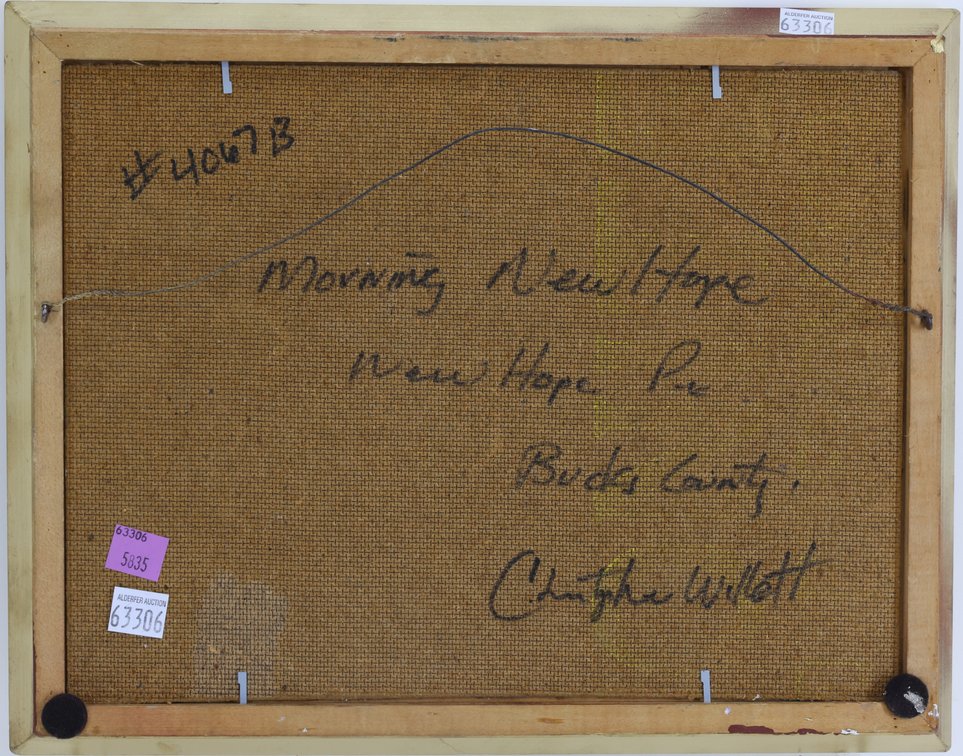 ALDERFER AUCTION
63306
#4067B
Morning New Hope
New Hope Pa
Bucks County.
Christopher Willett
63306
5835
ALDERFER AUCTION
63306